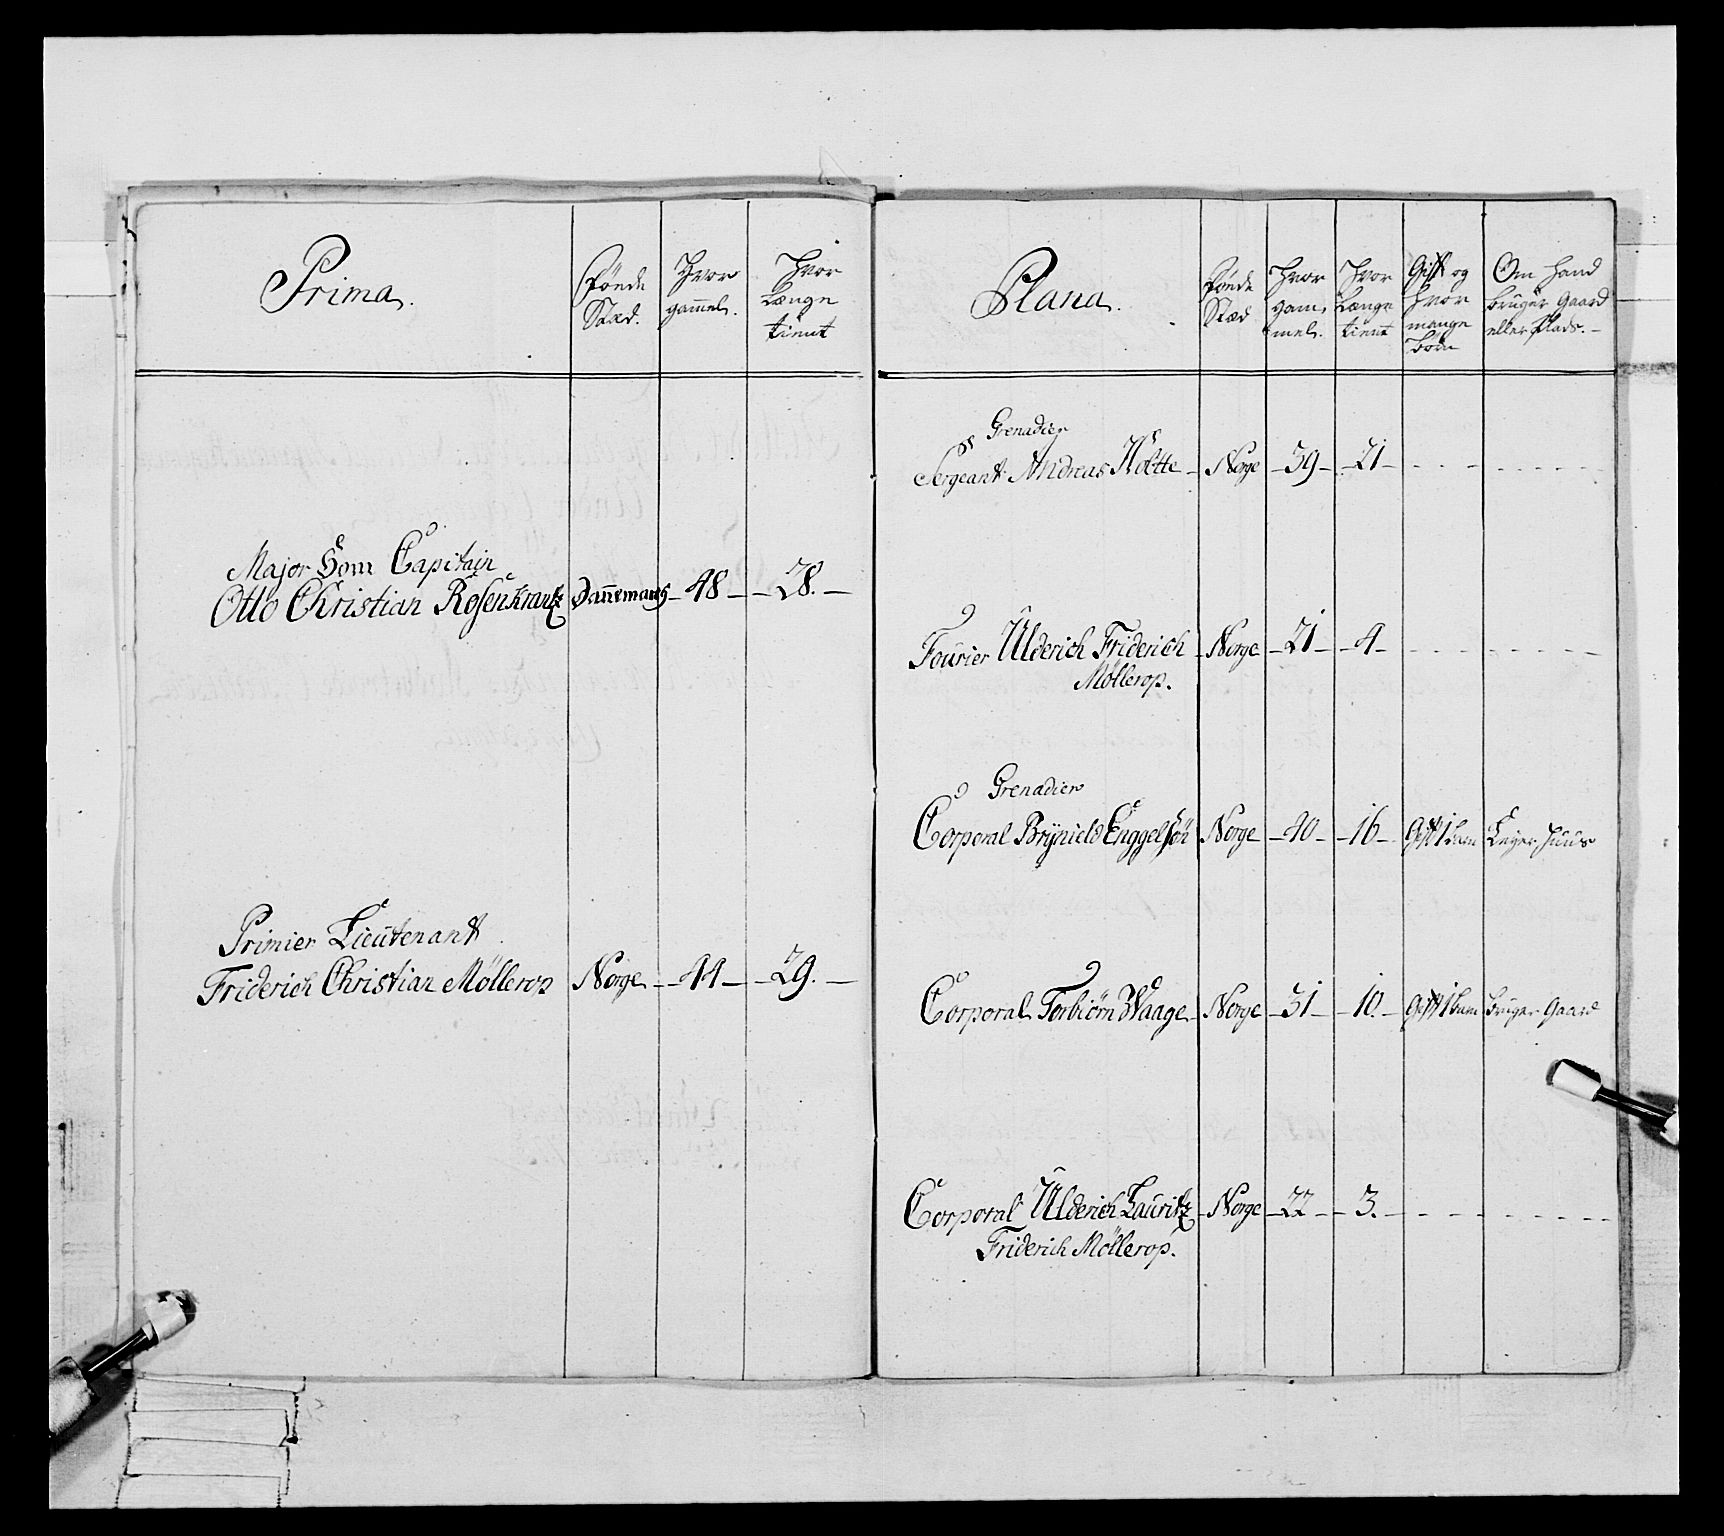 Prima.
Föude Stæd.
Hvor gam̄el.
Hvor Længe tient
Major Som Capitain
Otto Christian Rosenkrantz Dan̄emarg - 48 - - 28. -
Primier Lieutenant
Friderich Christian Möllerop Norge - 44 - - 29. -
Plana.
Föude Stæd
Hvor gam, mel.
Hvor Længe tient
Gift og Hvor mange Börn
Om Hand bruger Gaard eller Plads. -
Grenadier
Sergeant Andreas Holtte - Norge - 39 - - 21 -
Fourier Ulderich Friderich - Norge - 21 - - 4 -
Möllerop.
Grenadier
Corporal Brÿnield Enggelsön Norge - 40 - - 16 - Gift 1 barn Leyer Huus
Corporal Torbiörn Waage - Norge - 31 - - 10. - Gift 1 barn bruger Gaard
Corporal Ulderich Lauritz - Norge - 22 - - 3. -
Friderich Möllerop.